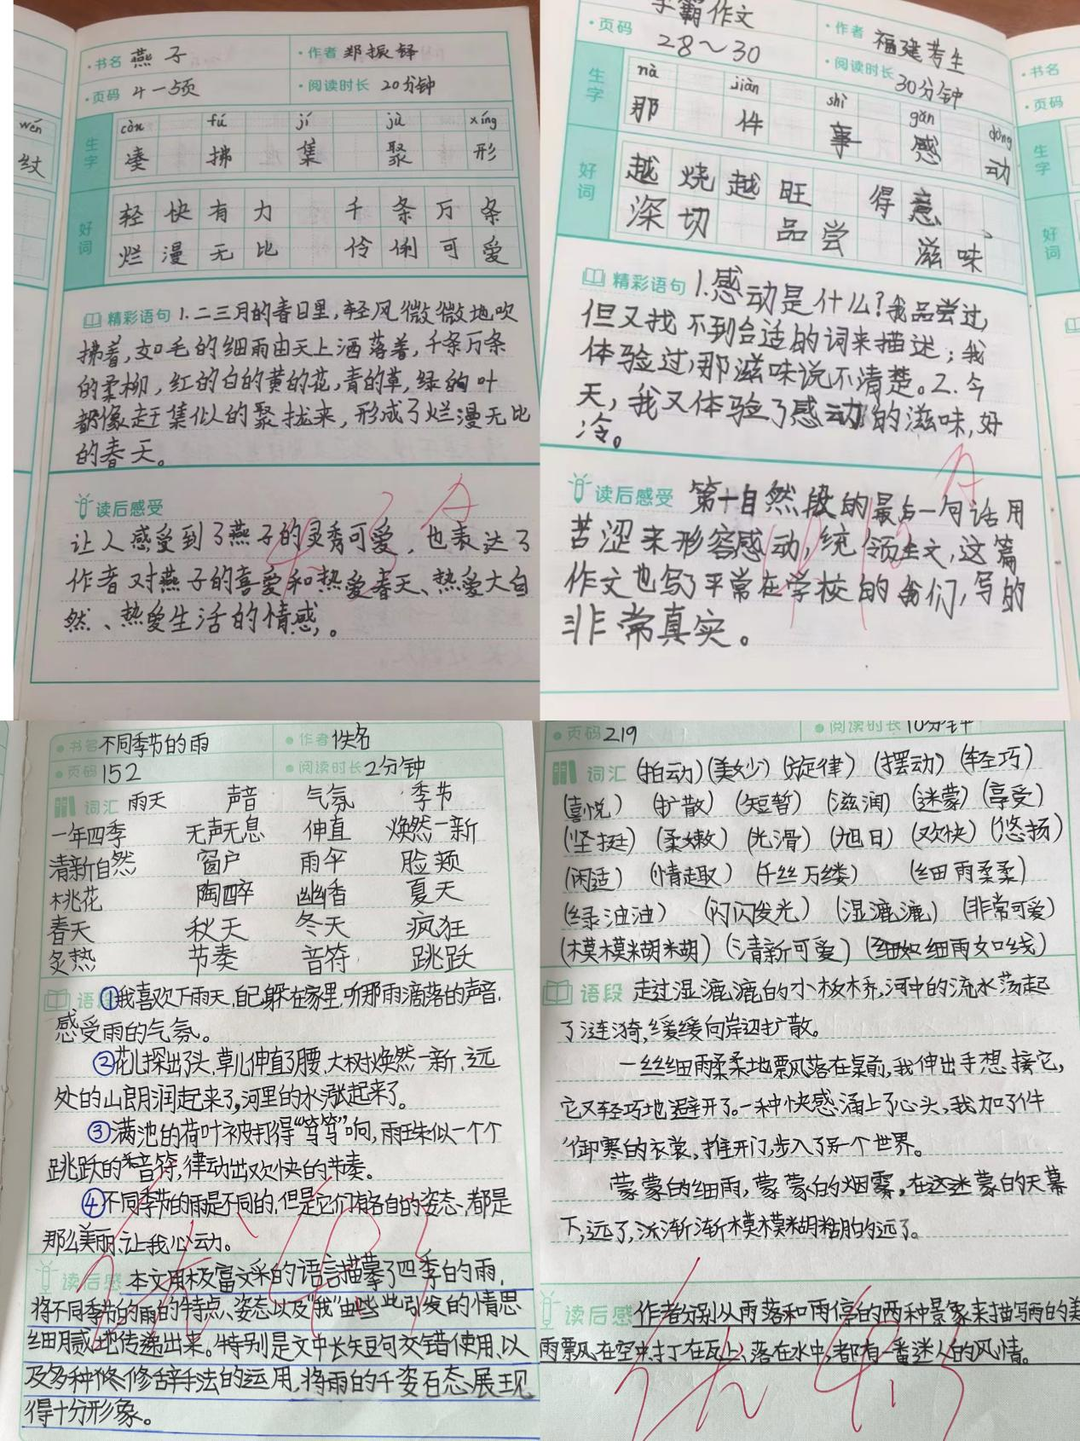 书名 燕子
作者 郑振铎
页码 4-5页
阅读时长 20分钟
生字
còu fú jí jù xíng
凑 拂 集 聚 形
好词
轻快有力 千条万条
烂漫无比 伶俐可爱
精彩语句 1.二三月的春日里,轻风微微地吹
拂着,如毛的细雨由天上洒落着,千条万条
的柔柳,红的白的黄的花,青的草,绿的叶
都像赶集似的聚拢来,形成了烂漫无比
的春天。
读后感受
让人感受到了燕子的灵秀可爱,也表达了
作者对燕子的喜爱和热爱春天、热爱大自
然、热爱生活的情感。
wén
纹
学霸作文
页码 28~30
作者 福建考生
阅读时长 30分钟
生字
nà jiàn shì gǎn dòng
那 件 事 感 动
好词
越烧越旺 得意、
深切 品尝 滋味
精彩语句 1.感动是什么?我品尝过,
但又找不到合适的词来描述;我
体验过,那滋味说不清楚。2.今
天,我又体验了感动的滋味,好
冷。
读后感受 第十自然段的最后一句话用
苦涩来形容感动,统领全文,这篇
作文也写了平常在学校的我们,写的
非常真实。
书名
页码
生字
好词
书名 不同季节的雨
作者 佚名
页码 152
阅读时长 2分钟
词汇 雨天 声音 气氛 季节
一年四季 无声无息 伸直 焕然一新
清新自然 窗户 雨伞 脸颊
桃花 陶醉 幽香 夏天
春天 秋天 冬天 疯狂
炙热 节奏 音符 跳跃
语段 ①我喜欢下雨天,自己躲在家里,听那雨滴落的声音,
感受雨的气氛。
②花儿探出了头,草儿伸直了腰,大树焕然一新,远
处的山朗润起来了,河里的水涨起来了。
③满池的荷叶被打得“笃笃”响,雨珠似一个个
跳跃的音符,律动出欢快的节奏。
④不同季节的雨是不同的,但是它们有各自的姿态,都是
那么美丽,让我心动。
读后感 本文用极富文采的语言描摹了四季的雨,
将不同季节的雨的特点、姿态以及“我”由此引发的情思
细腻地传递出来。特别是文中长短句交错使用,以
及多种修辞手法的运用,将雨的千姿百态展现
得十分形象。
页码 219
阅读时长 10分钟
词汇 (拍动)(美妙)(旋律)(摆动)(轻巧)
(喜悦)(扩散)(短暂)(滋润)(迷蒙)(享受)
(坚挺)(柔嫩)(光滑)(旭日)(欢快)(悠扬)
(闲适)(情趣)(千丝万缕)(细雨柔柔)
(绿油油)(闪闪发光)(湿漉漉)(非常可爱)
(模模糊糊)(清新可爱)(细如细雨如线)
语段 走过湿漉漉的小板桥,河中的流水荡起
了涟漪,缓缓向岸边扩散。
一丝丝细雨柔柔地飘落在桌前,我伸出手想接它,
它又轻巧地避开了。一种快感涌上了心头,我加了件
御寒的衣裳,推开门,步入了另一个世界。
蒙蒙的细雨,蒙蒙的烟雾,在这迷蒙的天幕
下,远了,渐渐模模糊糊的远了。
读后感 作者分别从雨落和雨停的两种景象来描写雨的美
雨飘在空中,打在瓦上,落在水中,都有一番迷人的风情。